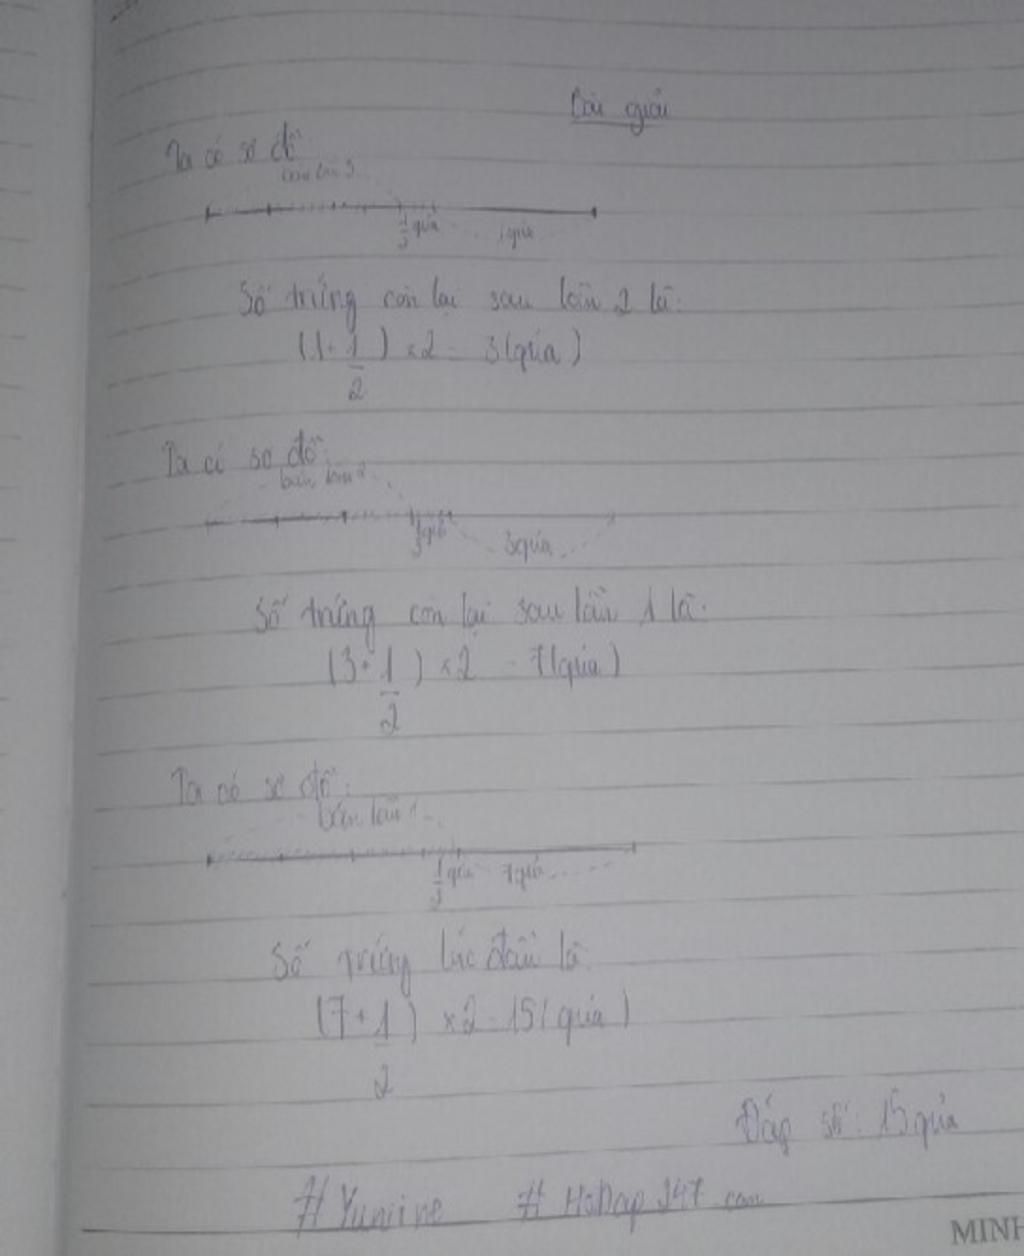 Bài giải
Ta có sơ đồ
bán lần 3
1/2 quả 1 quả
Số trứng còn lại sau lần 2 là:
(1+1/2) x2 = 3(quả)
Ta có sơ đồ:
bán lần 2
1/2 quả 3 quả
Số trứng còn lại sau lần 1 là:
(3+1/2) x2 = 7(quả)
Ta có sơ đồ:
bán lần 1
1/2 quả 7 quả
Số trứng lúc đầu là
(7+1/2) x2 = 15(quả)
Đáp số: 15 quả
#Yuniine #Hoidap247.com
MINH